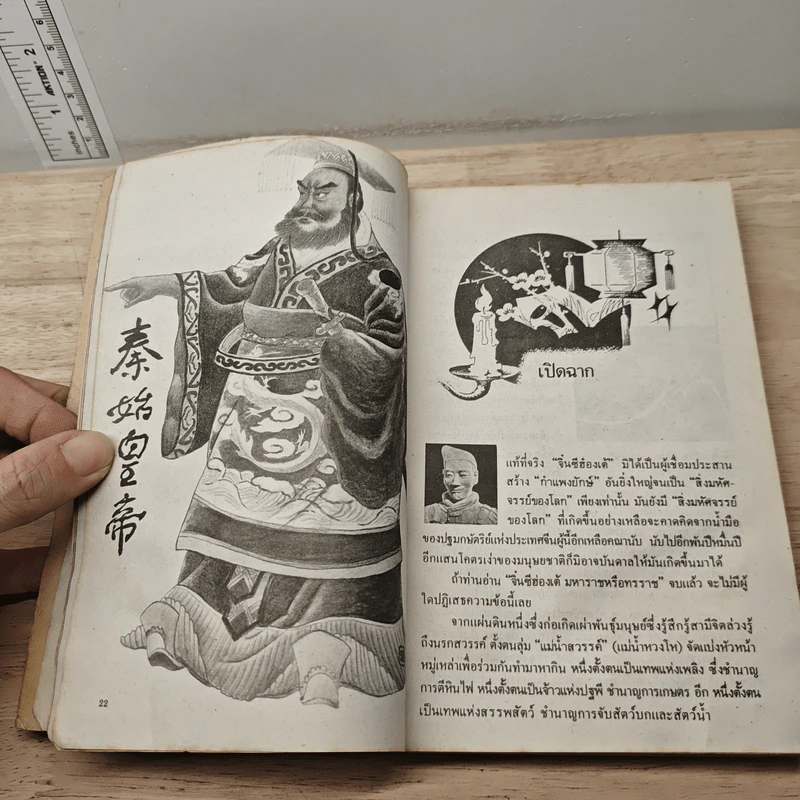 AKTION
inches
秦始皇帝
22
เปิดฉาก
แท้ที่จริง "จิ๋นซีฮ่องเต้" มิได้เป็นผู้เชื่อมประสาน
สร้าง "กำแพงยักษ์" อันยิ่งใหญ่จนเป็น "สิ่งมหัศ-
จรรย์ของโลก" เพียงเท่านั้น มันยังมี "สิ่งมหัศจรรย์
ของโลก" ที่เกิดขึ้นอย่างเหลือจะคาดคิดจากน้ำมือ
ของปฐมกษัตริย์แห่งประเทศจีนผู้นี้อีกเหลือคณานับ นับไปอีกพันปีหมื่นปี
อีกแสนโคตรเง่าของมนุษยชาติก็มิอาจบันดาลให้มันเกิดขึ้นมาได้
ถ้าท่านอ่าน "จิ๋นซีฮ่องเต้ มหาราชหรือทรราช" จบแล้ว จะไม่มีผู้
ใดปฏิเสธความข้อนี้เลย
จากแผ่นดินหนึ่งซึ่งก่อเกิดเผ่าพันธุ์มนุษย์ซึ่งรู้สึกรู้สามีจิตล่วงรู้
ถึงนรกสวรรค์ ตั้งตนลุ่ม "แม่น้ำสวรรค์" (แม่น้ำหวงโห) จัดแบ่งหัวหน้า
หมู่เหล่าเพื่อร่วมกันทำมาหากิน หนึ่งตั้งตนเป็นเทพแห่งเพลิง ซึ่งชำนาญ
การตีหินไฟ หนึ่งตั้งตนเป็นจ้าวแห่งปฐพี ชำนาญการเกษตร อีก หนึ่งตั้งตน
เป็นเทพแห่งสรรพสัตว์ ชำนาญการจับสัตว์บกและสัตว์น้ำ